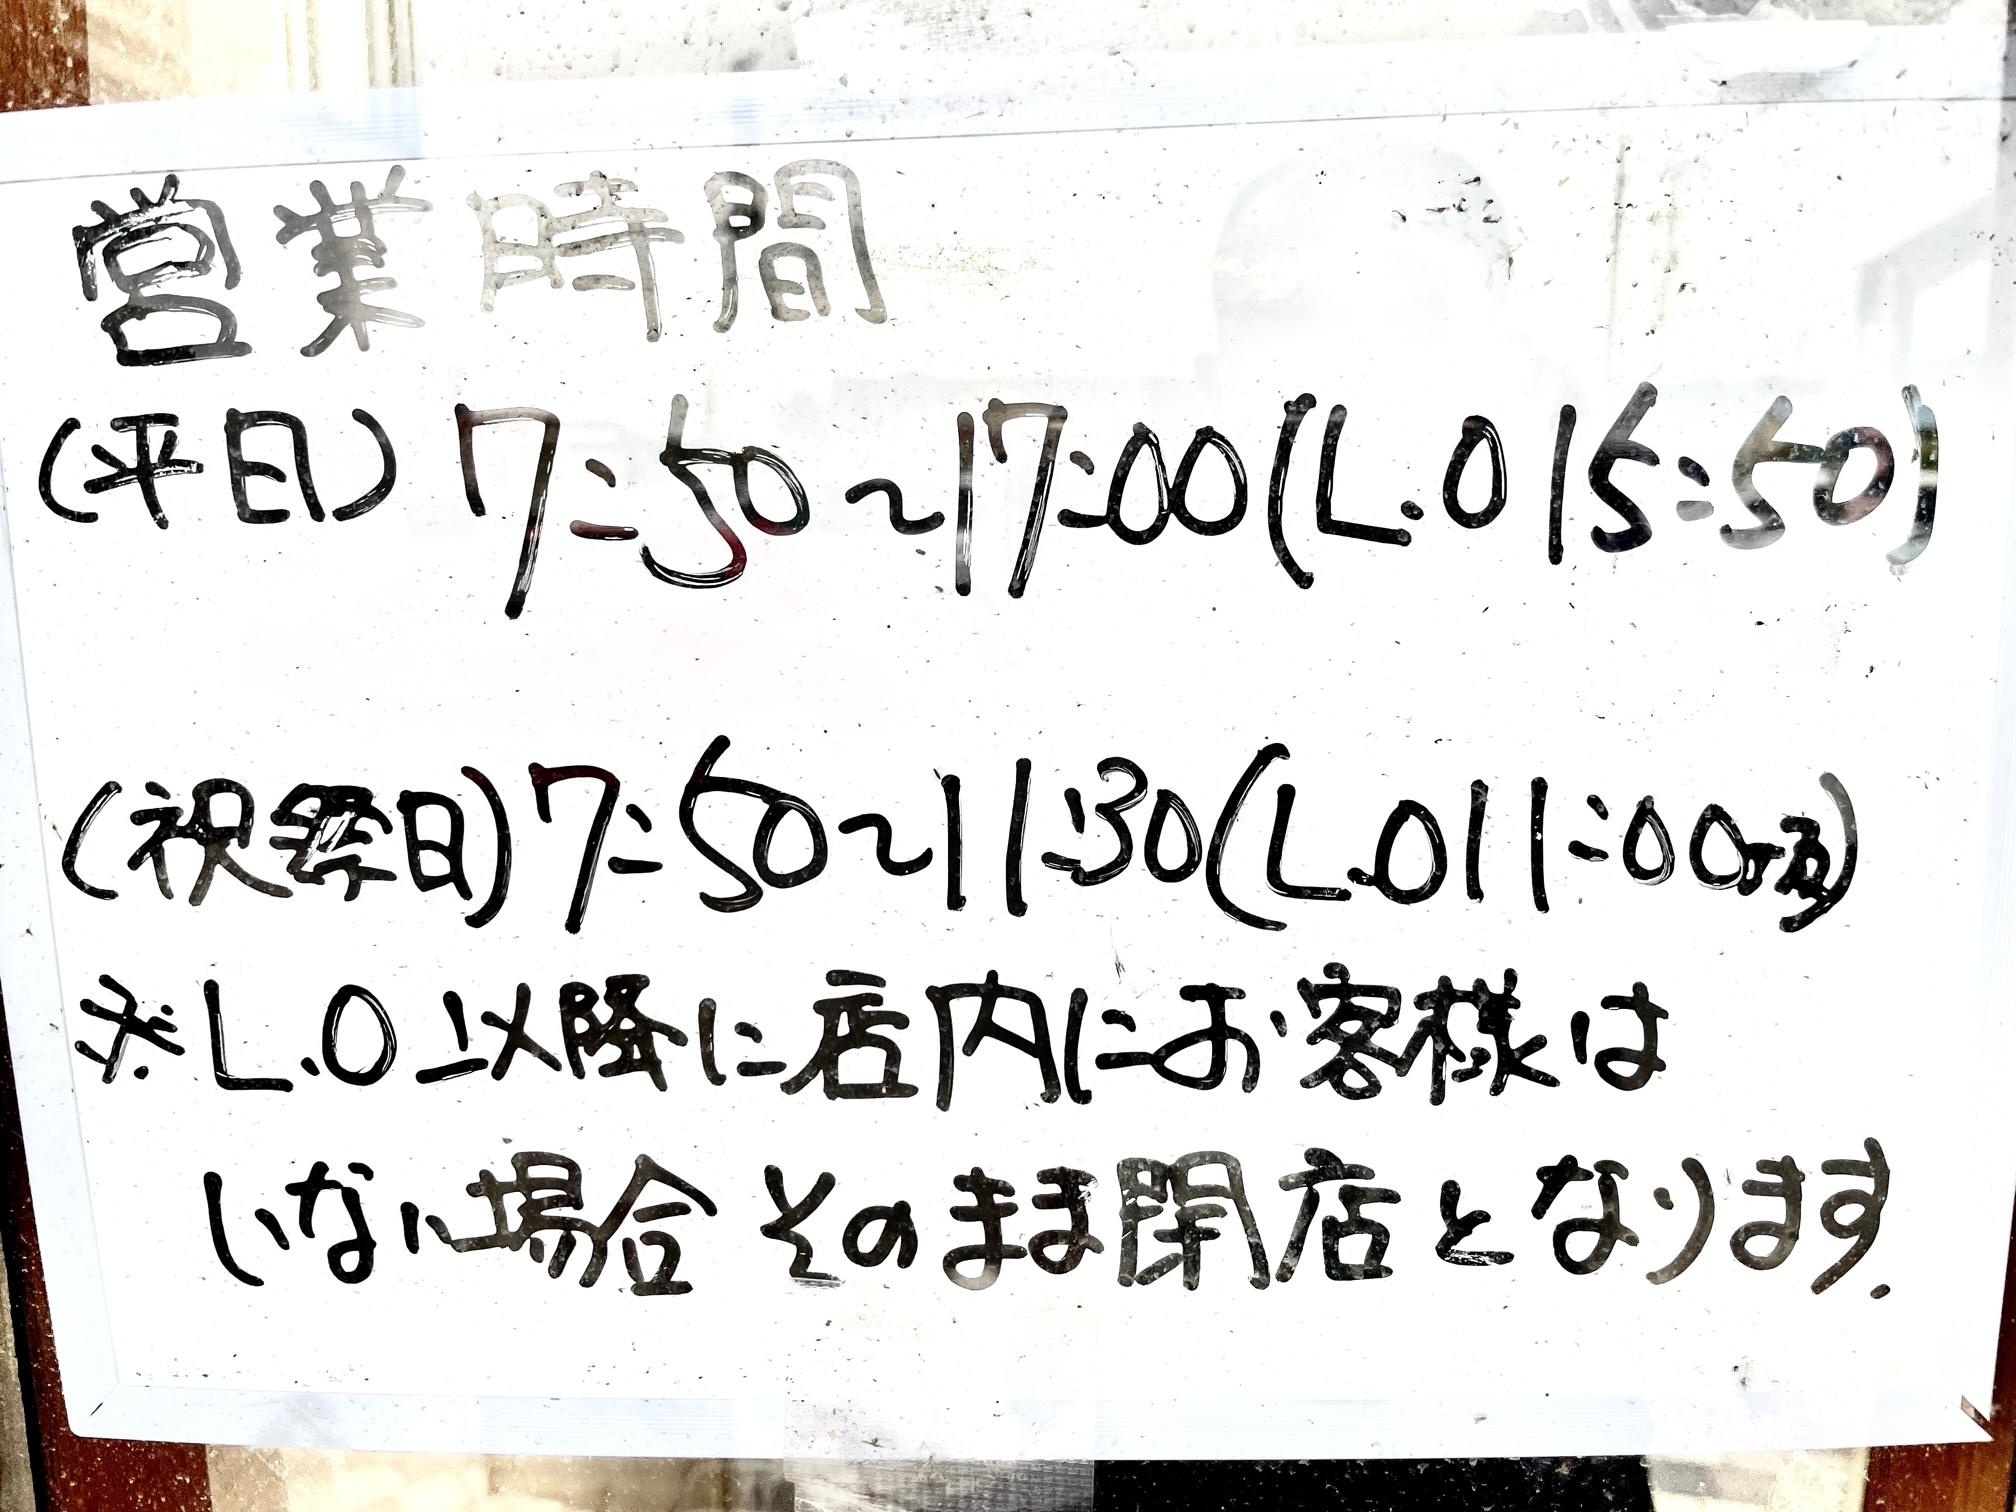 営業時間
(平日) 7:50~17:00(L.O 15:50)
(祝祭日)7:50~11:30(L.O11:00
※L.O以降に店内にお客様は
いない場合 そのまま閉店となります.